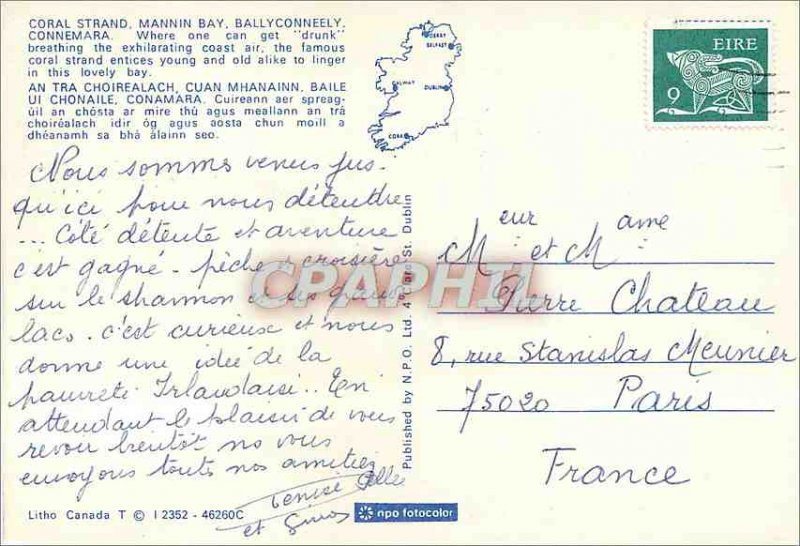 CORAL STRAND, MANNIN BAY, BALLYCONNEELY,
CONNEMARA. Where one can get "drunk"
breathing the exhilarating coast air, the famous
coral strand entices young and old alike to linger
in this lovely bay.
AN TRA CHOIREALACH, CUAN MHANAINN, BAILE
UI CHONAILE, CONAMARA. Cuireann aer spreag-
úil an chósta ar mire thú agus meallann an trá
choiréalach idir óg agus aosta chun moill a
dhéanamh sa bhá álainn seo.
DERRY
BELFAST
GALWAY
DUBLIN
CORK
EIRE
9
Nous sommes venus jus-
qu'ici pour nous détendre
... Côté détente et aventure
c'est gagné - pêche, croisière
sur le Shannon et ses grands
lacs. c'est curieux et nous
donne une idée de la
pauvreté Irlandaise.. En
attendant le plaisir de vous
revoir bientôt ns vous
envoyons toutes nos amitiés
Denise
et
Published by N.P.O. Ltd. 4 St. Dublin
Meur et Mame
Pierre Chateau
8, rue Stanislas Meunier
75020 Paris
France
CPAPHIL
Litho Canada T © I 2352 - 46260C
npo fotocolor